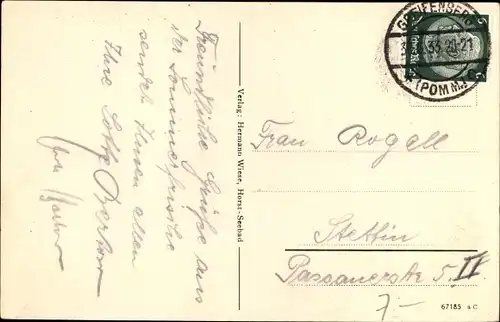 Freundliche Grüße aus
der Sommerfrische
sendet Ihnen allen
Ihre Lotte
Verlag: Hermann Wiese, Horst-Seebad
GREIFENBERG
33.20-21
(POMM)
Frau Rogall
Stettin
Passauerstr. 5 II
7.-
67185 a C